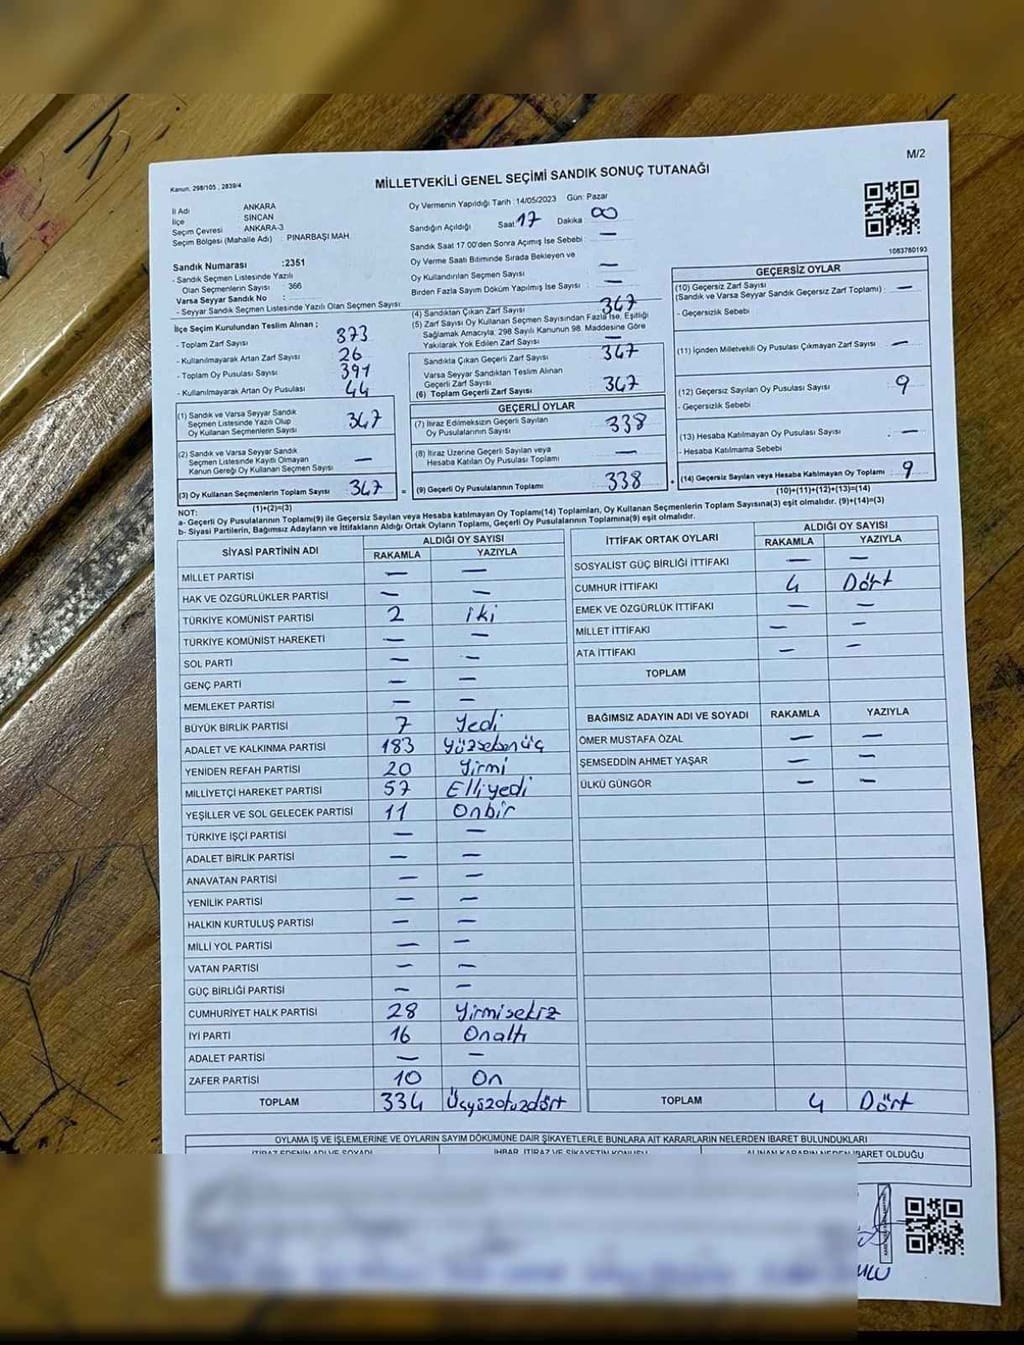 M/2
Kanun, 298/105 , 2839/4
MİLLETVEKİLİ GENEL SEÇİMİ SANDIK SONUÇ TUTANAĞI
İl Adı ANKARA
İlçe SİNCAN
Seçim Çevresi ANKARA-3
Seçim Bölgesi (Mahalle Adı) : PINARBAŞI MAH.
Oy Vermenin Yapıldığı Tarih :14/05/2023 Gün: Pazar
Sandığın Açıldığı Saat 17 Dakika 00
Sandık Saat 17 00'den Sonra Açımış İse Sebebi : —
Oy Verme Saati Bitiminde Sırada Bekleyen ve
Oy Kullandırılan Seçmen Sayısı —
Birden Fazla Sayım Döküm Yapılmış İse Sayısı : —
1063760193
Sandık Numarası :2351
- Sandık Seçmen Listesinde Yazılı
Olan Seçmenlerin Sayısı : 366
Varsa Seyyar Sandık No :
- Seyyar Sandık Seçmen Listesinde Yazılı Olan Seçmen Sayısı:
İlçe Seçim Kurulundan Teslim Alınan ;
- Toplam Zarf Sayısı 373
- Kullanılmayarak Artan Zarf Sayısı 26
- Toplam Oy Pusulası Sayısı 391
- Kullanılmayarak Artan Oy Pusulası 44
(1) Sandık ve Varsa Seyyar Sandık
Seçmen Listesinde Yazılı Olup
Oy Kullanan Seçmenlerin Sayısı 347
(2) Sandık ve Varsa Seyyar Sandık
Seçmen Listesinde Kayıtlı Olmayan
Kanun Gereği Oy Kullanan Seçmen Sayısı —
(3) Oy Kullanan Seçmenlerin Toplam Sayısı 347
(1)+(2)=(3)
(4) Sandıktan Çıkan Zarf Sayısı 347
(5) Zarf Sayısı Oy Kullanan Seçmen Sayısından Fazla İse, Eşitliği
Sağlamak Amacıyla, 298 Sayılı Kanunun 98. Maddesine Göre
Yakılarak Yok Edilen Zarf Sayısı —
Sandıkta Çıkan Geçerli Zarf Sayısı 347
Varsa Seyyar Sandıktan Teslim Alınan
Geçerli Zarf Sayısı
(6) Toplam Geçerli Zarf Sayısı 347
GEÇERLİ OYLAR
(7) İtiraz Edilmeksizin Geçerli Sayılan
Oy Pusulalarının Sayısı 338
(8) İtiraz Üzerine Geçerli Sayılan veya
Hesaba Katılan Oy Pusulası Toplamı —
= (9) Geçerli Oy Pusulalarının Toplamı 338 +
GEÇERSİZ OYLAR
(10) Geçersiz Zarf Sayısı
(Sandık ve Varsa Seyyar Sandık Geçersiz Zarf Toplamı) : —
- Geçersizlik Sebebi
(11) İçinden Milletvekili Oy Pusulası Çıkmayan Zarf Sayısı —
(12) Geçersiz Sayılan Oy Pusulası Sayısı 9
- Geçersizlik Sebebi
(13) Hesaba Katılmayan Oy Pusulası Sayısı —
- Hesaba Katılmama Sebebi
(14) Geçersiz Sayılan veya Hesaba Katılmayan Oy Toplamı 9
(10)+(11)+(12)+(13)=(14)
NOT:
a- Geçerli Oy Pusulalarının Toplamı(9) ile Geçersiz Sayılan veya Hesaba katılmayan Oy Toplamı(14) Toplamları, Oy Kullanan Seçmenlerin Toplam Sayısına(3) eşit olmalıdır. (9)+(14)=(3)
b- Siyasi Partilerin, Bağımsız Adayların ve İttifakların Aldığı Ortak Oyların Toplamı, Geçerli Oy Pusulalarının Toplamına(9) eşit olmalıdır.
SİYASİ PARTİNİN ADI ALDIĞI OY SAYISI
RAKAMLA YAZIYLA
MİLLET PARTİSİ — —
HAK VE ÖZGÜRLÜKLER PARTİSİ — —
TÜRKİYE KOMÜNİST PARTİSİ 2 iki
TÜRKİYE KOMÜNİST HAREKETİ — —
SOL PARTİ — —
GENÇ PARTİ — —
MEMLEKET PARTİSİ — —
BÜYÜK BİRLİK PARTİSİ 7 Yedi
ADALET VE KALKINMA PARTİSİ 183 Yüzseksenüç
YENİDEN REFAH PARTİSİ 20 Yirmi
MİLLİYETÇİ HAREKET PARTİSİ 57 Elliyedi
YEŞİLLER VE SOL GELECEK PARTİSİ 11 Onbir
TÜRKİYE İŞÇİ PARTİSİ — —
ADALET BİRLİK PARTİSİ — —
ANAVATAN PARTİSİ — —
YENİLİK PARTİSİ — —
HALKIN KURTULUŞ PARTİSİ — —
MİLLİ YOL PARTİSİ — —
VATAN PARTİSİ — —
GÜÇ BİRLİĞİ PARTİSİ — —
CUMHURİYET HALK PARTİSİ 28 Yirmisekiz
İYİ PARTİ 16 Onaltı
ADALET PARTİSİ — —
ZAFER PARTİSİ 10 On
TOPLAM 334 Üçyüzotuzdört
İTTİFAK ORTAK OYLARI ALDIĞI OY SAYISI
RAKAMLA YAZIYLA
SOSYALİST GÜÇ BİRLİĞİ İTTİFAKI — —
CUMHUR İTTİFAKI 4 Dört
EMEK VE ÖZGÜRLÜK İTTİFAKI — —
MİLLET İTTİFAKI — —
ATA İTTİFAKI — —
TOPLAM
BAĞIMSIZ ADAYIN ADI VE SOYADI RAKAMLA YAZIYLA
ÖMER MUSTAFA ÖZAL — —
ŞEMSEDDİN AHMET YAŞAR — —
ÜLKÜ GÜNGÖR — —
TOPLAM 4 Dört
OYLAMA İŞ VE İŞLEMLERİNE VE OYLARIN SAYIM DÖKÜMÜNE DAİR ŞİKAYETLERLE BUNLARA AİT KARARLARIN NELERDEN İBARET BULUNDUKLARI
İTİRAZ EDENİN ADI VE SOYADI İHBAR, İTİRAZ VE ŞİKAYETİN KONUSU ALINAN KARARIN NEDEN İBARET OLDUĞU